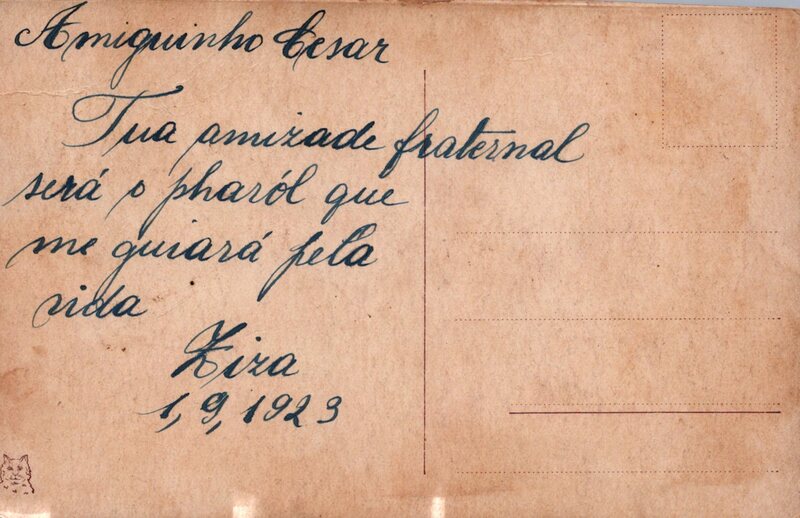 Amiguinho Cesar
Tua amizade fraternal
será o pharól que
me guiará pela
vida
Ziza
1,9,1923